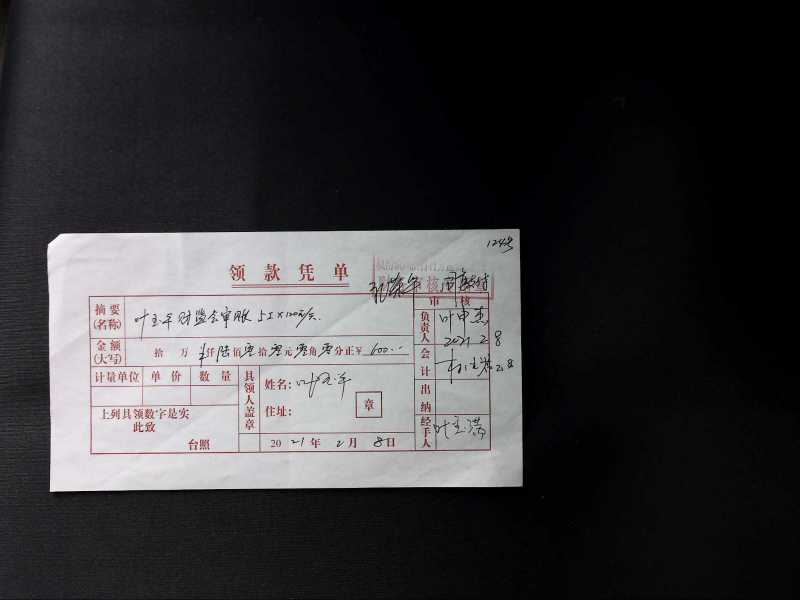 124号
领款凭单
审核
摘要(名称) 叶玉平财监会审账 5工×120元/天
审核
负责人 叶中杰 2021.2.8
金额(大写) 拾 万 仟陆佰零拾零元零角零分正￥600.--
会计 2.8
计量单位 单价 数量
具领人盖章 姓名:叶玉平
住址: 章
出纳
上列具领数字是实
此致
台照
2021年2月8日
经手人 叶玉满